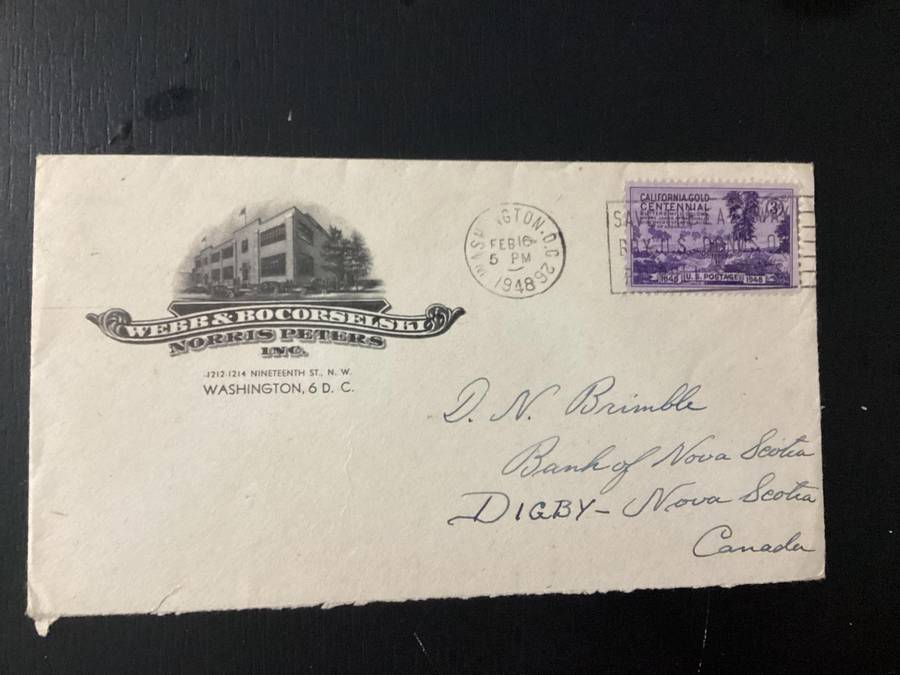 WEBB & BOCORSELSKI
NORRIS PETERS
INC.
1212-1214 NINETEENTH ST., N. W.
WASHINGTON, 6 D. C.
WASHINGTON, D.C.
FEB 16
5 PM
1948
CALIFORNIA GOLD
CENTENNIAL
3¢
SAVE THE EASY WAY
BUY U.S. BONDS
1848 U.S. POSTAGE 1948
D. N. Brimble
Bank of Nova Scotia
DIGBY - Nova Scotia
Canada